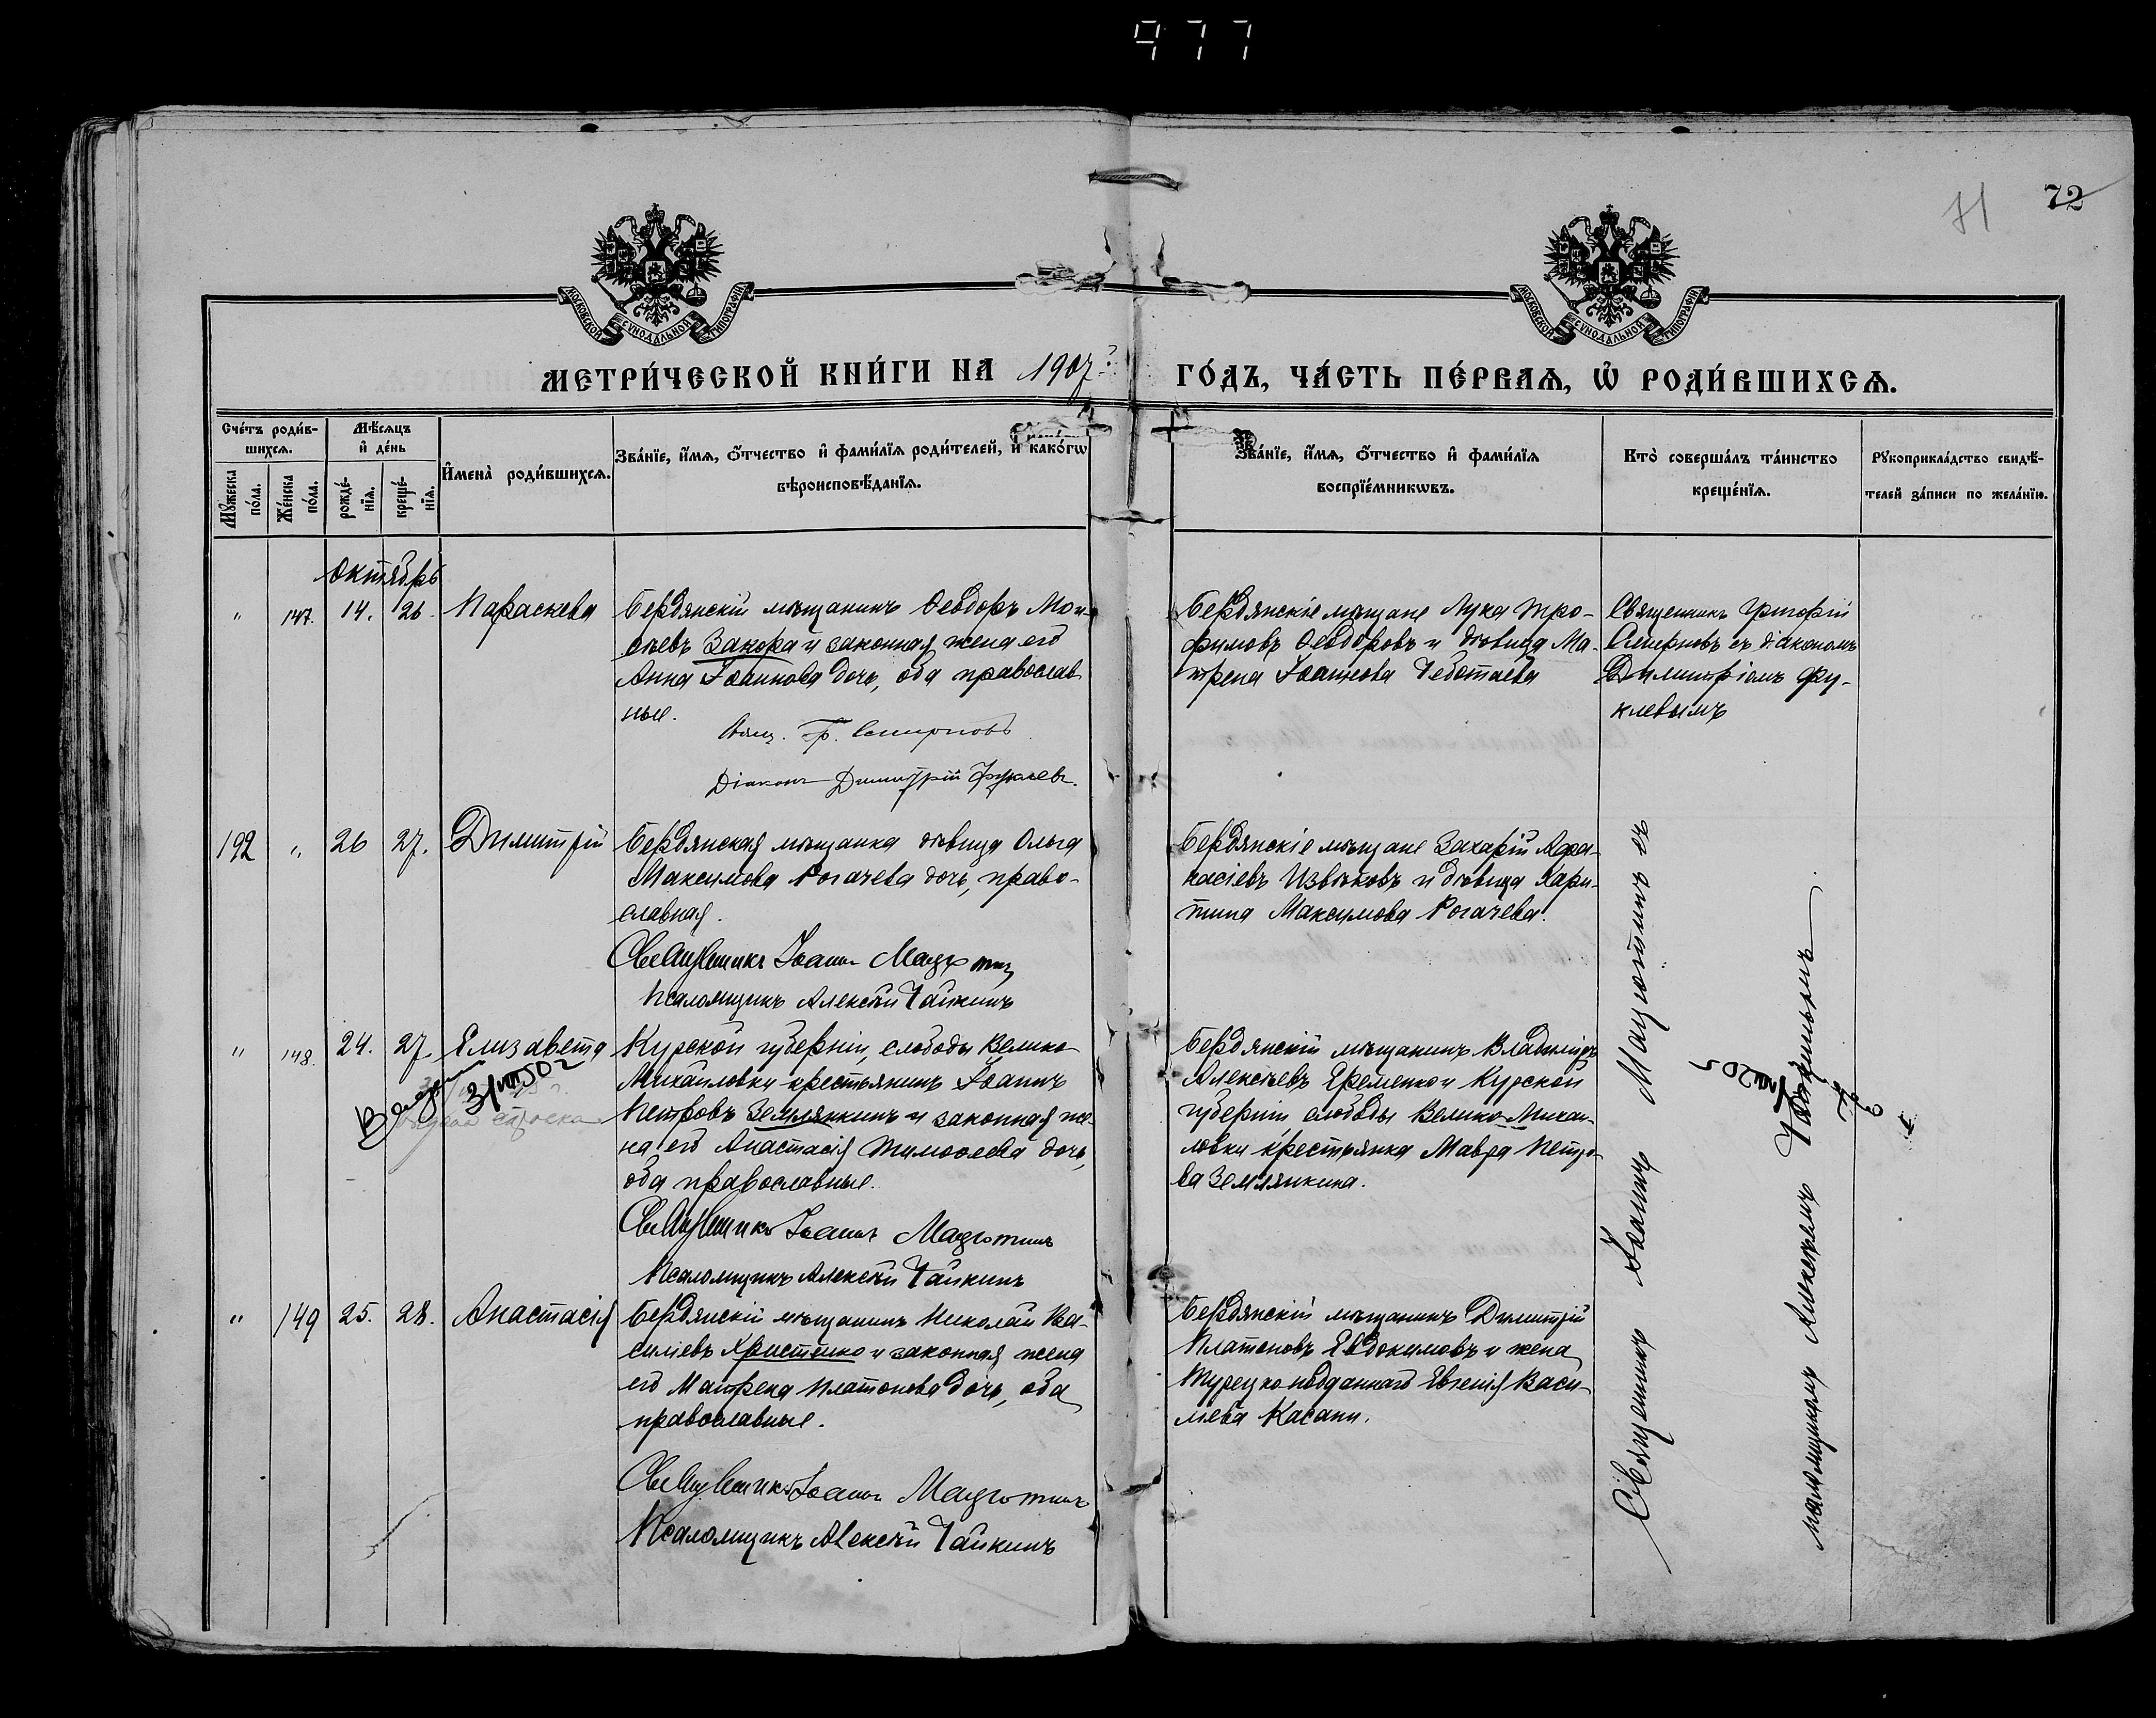 977
72
71
МОСКОВСКОЙ СѴНОДАЛЬНОЙ ТИПОГРАФІИ
МОСКОВСКОЙ СѴНОДАЛЬНОЙ ТИПОГРАФІИ
МЕТРИ́ЧЕСКОЙ КНИ́ГИ НА 1907 ГО́ДЪ, ЧА́СТЬ ПЕ́РВАѦ, Ѽ РОДИ́ВШИХСѦ.
Сче́тъ роди́в-
шихсѧ.
Мꙋ́жеска
по́ла.
Же́нска
по́ла.
Мѣ́сѧцъ
и҆ де́нь
рожде́-
нїѧ.
креще́-
нїѧ.
И҆мена̀ роди́вшихсѧ.
Зва́нїе, и҆́мѧ, ѻ҆́тчество и҆ фами́лїѧ роди́телей, и҆ како́гѡ
вѣроисповѣ́данїѧ.
Зва́нїе, и҆́мѧ, ѻ҆́тчество и҆ фами́лїѧ
воспрїе́мникѡвъ.
Кто̀ соверша́лъ та́инство
креще́нїѧ.
Рꙋкоприкла́дство свидѣ́-
телей за́писи по жела́нїю.
Октябрь
" 147. 14. 26. Параскева
Бердянскій мѣщанинъ Ѳеодоръ Мои-
сѣевъ Закора и законная жена его
Анна Іоаннова дочь, оба православ
ные.
Свящ. Гр. Смирновъ
Діаконъ Димитрій Фуклевъ.
Бердянскіе мѣщане Лука Тро-
фимовъ Ѳеодоровъ и дѣвица Ма-
трена Іоаннова Чеботаева
Священникъ Григорій
Смирновъ съ діакономъ
Димитріемъ Фу-
клевымъ
192 " 26 27. Димитрій
Бердянская мѣщанка дѣвица Ольга
Максимова Рогачева дочь, право-
славная.
Священникъ Іоаннъ Мацютинъ
Псаломщикъ Алексѣй Чайкинъ
Бердянскіе мѣщане Захарій Аѳа-
насіевъ Извѣковъ и дѣвица Хари-
тина Максимова Рогачева.
" 148. 24. 27. Елизавета
Курской губерніи, слободы Велико-
Михайловки крестьянинъ Іоаннъ
Петровъ Землянкинъ и законная же-
на его Анастасія Тимоѳеева дочь,
оба православные.
Священникъ Іоаннъ Мацютинъ
Псаломщикъ Алексѣй Чайкинъ
Бердянскій мѣщанинъ Владиміръ
Алексѣевъ Еременко и Курской
губерніи слободы Велико-Михаи-
ловки крестьянка Мавра Петро-
ва Землянкина.
" 149 25. 28. Анастасія
Бердянскій мѣщанинъ Николай Ва-
силіевъ Христенко и законная жена
его Матрена Платонова дочь, оба
православные.
Священникъ Іоаннъ Мацютинъ
Псаломщикъ Алексѣй Чайкинъ
Бердянскій мѣщанинъ Димитрій
Платоновъ Евдокимовъ и жена
Турецко-подданнаго Евгенія Васи-
льева Касапи.
Священникъ Іоаннъ Мацютинъ съ
псаломщикомъ Алексѣемъ Чайкинымъ